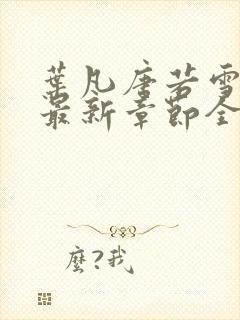 葉凡唐若雪
最新章節全
麼?我